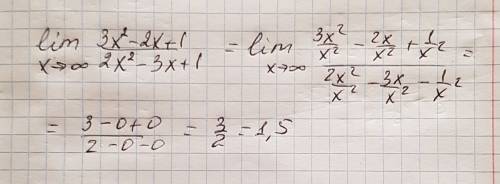 lim x→∞ (3x² - 2x + 1)/(2x² - 3x + 1) = lim x→∞ (3x²/x² - 2x/x² + 1/x²)/(2x²/x² - 3x/x² - 1/x²) =
= (3 - 0 + 0)/(2 - 0 - 0) = 3/2 = 1,5